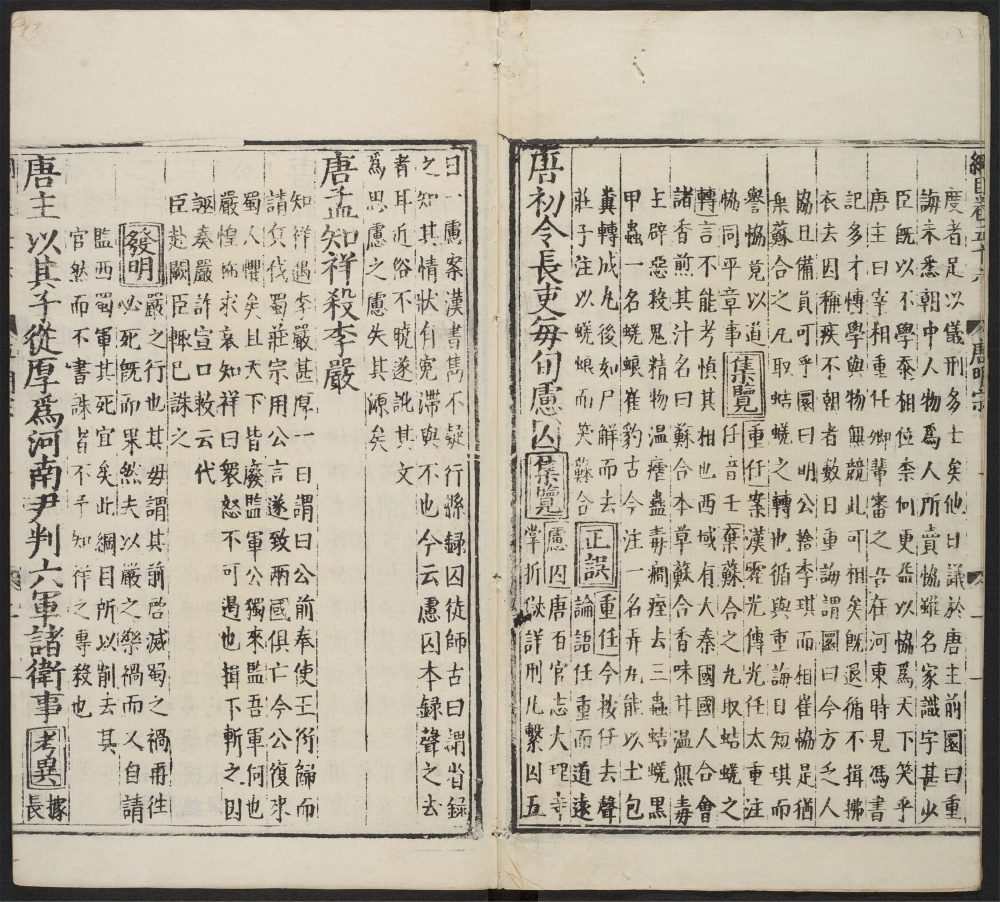 綱目卷五十六　唐明宗
度者足以儀刑多士矣他日議於唐主前圜曰重
誨未悉朝中人物爲人所賣恊雖名家識字甚少
臣旣以不學忝相位柰何更益以恊爲天下笑乎
唐主曰宰相重任卿輩審之吾在河東時見馮書
記多才博學與物無競此可相矣旣退循不揖拂
衣去因稱疾不朝者數日重誨謂圜曰今方乏人
恊且備員可乎圜曰明公捨李琪而相崔恊是猶
棄蘇合之丸取蛣蜣之轉也循與重誨日短琪而
譽恊竟以道
恊同平章事集覽重任案漢霍光傳光任太重注
任音壬棄蘇合之丸取蛣蜣之
轉言不能考愼其相也西域有大秦國國人合會
諸香煎其汁名曰蘇合本草蘇合香味甘温無毒
主辟惡殺鬼精物温瘧蠱毒癇痓去三蟲蛣蜣黑
甲蟲一名蜣蜋崔豹古今注一名弄丸能以土包
糞轉成丸後如尸解而去正誤重任今按任去聲
莊子注以蜣蜋而笑蘇合論語任重而道遠
唐初令長吏每旬慮囚集覽慮囚唐百官志大理寺
掌折獄詳刑凡繫囚五
日一慮案漢書雋不疑行縣録囚徒師古曰謂省録
之知其情狀有寃滯與不也今云慮囚本録聲之去
者耳近俗不曉遂訛其文
爲思慮之慮失其源矣
唐孟知祥殺李嚴
知祥遇李嚴甚厚一日謂曰公前奉使王衍歸而
請兵伐蜀莊宗用公言遂致兩國俱亡今公復來
蜀人懼矣且天下皆廢監軍公獨來監吾軍何也
嚴惶怖求哀知祥曰衆怒不可遏也揖下斬之因
誣奏嚴詐宣口敕云代
臣赴闕臣輒巳誅之
發明嚴之行也其毋謂其前啓滅蜀之禍再往
必死旣而果然夫以嚴之樂禍而又自請
監西蜀軍其死宜矣此綱目所以削去其
官然而不書誅者不予知祥之專殺也
唐主以其子從厚爲河南尹判六軍諸衛事考異據
長